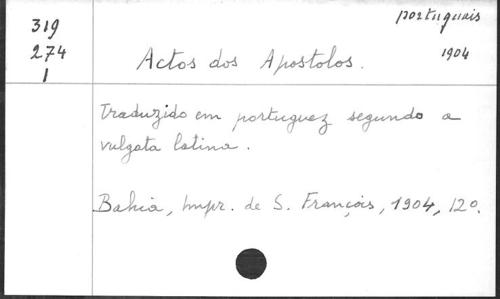 319 portuguais
274 Actos dos Apostolos. 1904
1
Traduzido em portuguez segundo a
vulgata latina.
Bahia, Impr. de S. François, 1904, 12º.